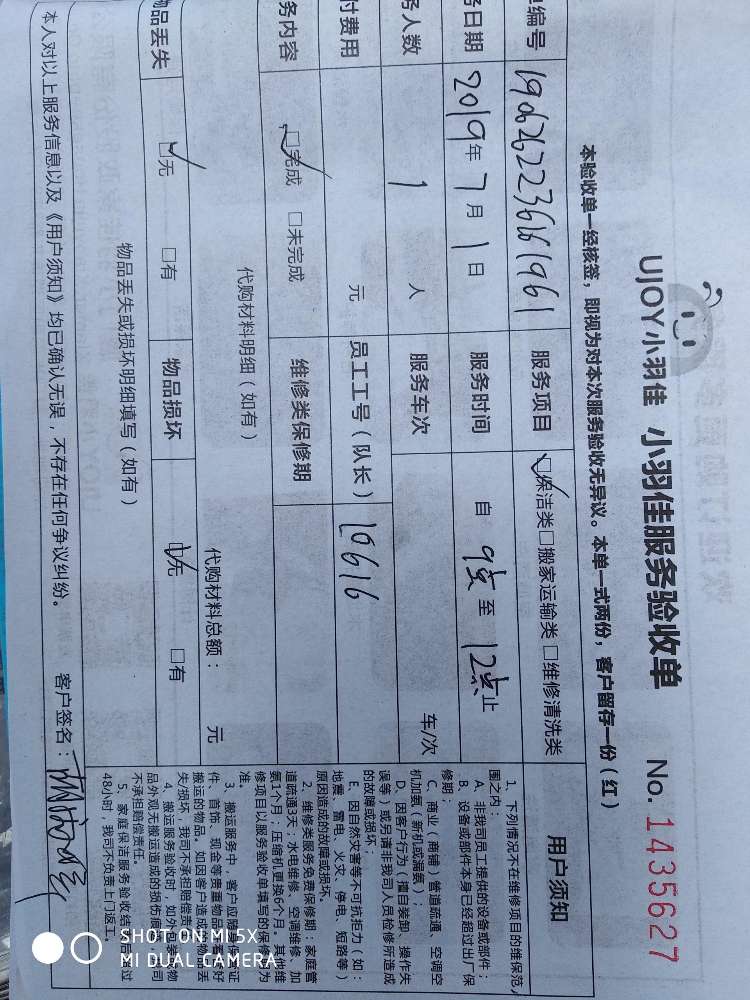 UJOY小羽佳 小羽佳服务验收单 No. 1435627
本验收单一经核签，即视为对本次服务验收无异议。本单一式两份，客户留存一份（红）
单编号 1906262236161961 服务项目 ☑保洁类□搬家运输类 □维修清洗类
务日期 2019年 7月 1日 服务时间 自 9点 至 12点 止
务人数 1 人 服务车次 车/次
付费用 元 员工工号（队长） 10616
务内容 ☑完成 □未完成 维修类保修期
代购材料明细（如有） 代购材料总额： 元
物品丢失 ☑无 □有 物品损坏 ☑无 □有
物品丢失或损坏明细填写（如有）
本人对以上服务信息以及《用户须知》均已确认无误，不存在任何争议纠纷。 客户签名：
用户须知
1、下列情况不在维修项目的维保范
围之内：
A、非我司员工提供的设备或部件；
B、设备或部件本身已经超过出厂保
修期；
C、商业（商铺）管道疏通、空调空
机加氨（新机或漏氨）；
D、因客户行为（擅自装卸、操作失
误等）或另请非我司人员检修所造成
的故障或损坏；
E、因自然灾害等不可抗拒力（如：
地震、雷电、火灾、停电、短路等）
原因造成的故障或损坏。
2、维修类服务免费保修期：家庭管
道疏通3天；水电维修、空调维修、加
氨1个月；压缩机更换6个月。其他维
修项目以服务验收单填写的保修期为
准。
3、搬运服务中，客户应随身保
证
件、首饰、现金等贵重物品
好
搬运的物品。如因客户造成
丢
失/损坏，我司不承担赔偿责
4、搬运服务验收时，如外包
物
品外观无搬运造成的损伤痕
司
不承担赔偿责任。
5、家庭保洁服务验收结
过
48小时，我司不负责上门返工。
SHOT ON MI 5X
MI DUAL CAMERA